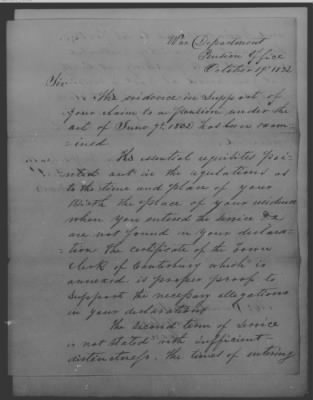 War Department
Pension Office
October 19th 1832
Sir
The evidence in support of
your claim to a pension under the
act of June 7th 1832 has been exam-
=ined
The essential requisites poi-
nted out in the regulations as
to the time and place of your
Birth the place of your residence
when you entered the service &c
are not found in your declara-
=tion the certificate of the Town
Clerk of Canterbury which is
annexed is proper proof to
support the necessary allegations
in your declaration
The second term of service
is not stated with sufficient-
distinctness. The times of entering